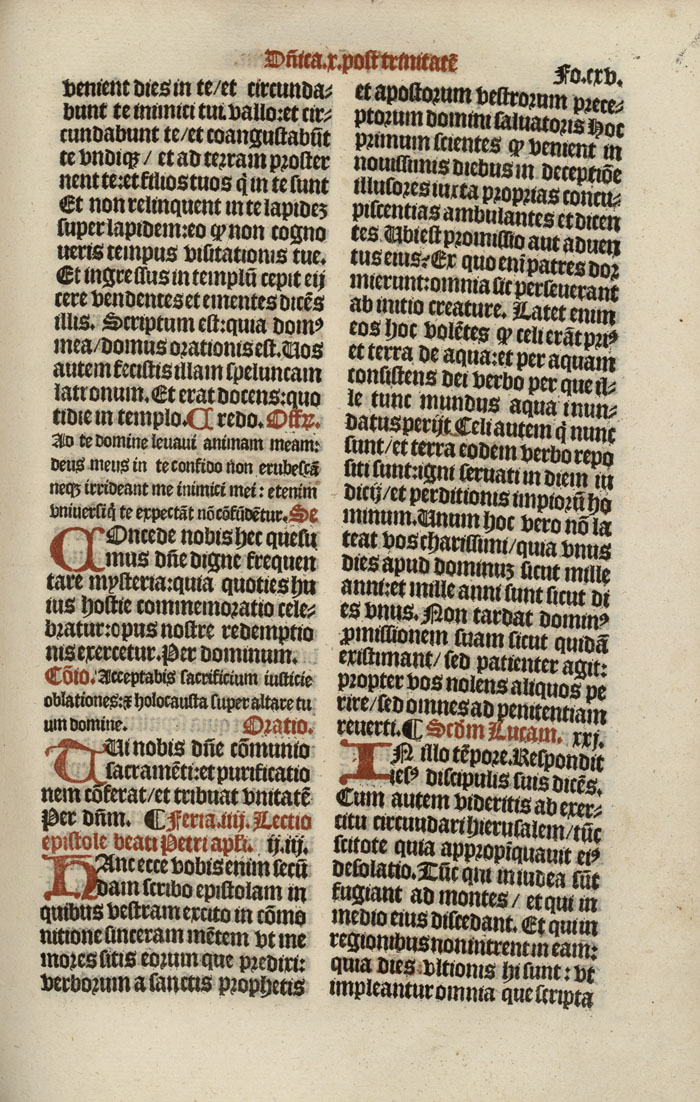 Dñica.x.post trinitatē
Fo.cxv.
venient dies in te/et circunda⸗
bunt te inimici tui vallo:et cir⸗
cundabunt te/et coangustabūt
te vndiqꝫ/ et ad terram proster
nent te:et filios tuos q̄ in te sunt
Et non relinquent in te lapideꝫ
super lapidem:eo ꝙ non cogno
ueris tempus visitationis tue.
Et ingressus in templū cepit eij
cere vendentes et ementes dicēs
illis. Scriptum est:quia domꝰ
mea/domus orationis est. Uos
autem fecistis illam speluncam
latronum. Et erat docens:quo
tidie in templo. Credo. Offꝝ.
Ad te domine leuaui animam meam:
deus meus in te confido non erubescā
neqꝫ irrideant me inimici mei: etenim
vniuersi q̄ te expectāt nō cōfūdētur. Se
COncede nobis hec quesu
mus dñe digne frequen
tare mysteria:quia quoties hu
ius hostie commemoratio cele⸗
bratur:opus nostre redemptio
nis exercetur. Per dominum.
Cōio. Acceptabis sacrificium iusticie
oblationes:ꝛ holocausta super altare tu
um domine. Oratio.
TUi nobis dñe cōmunio
sacramēti:et purificatio
nem cōferat/et tribuat vnitatē
Per dñm. ¶ Feria.iiij. Lectio
epistole beati Petri apl̄i. ij.iij.
HAnc ecce vobis enim secū
dam scribo epistolam in
quibus vestram excito in cōmo
nitione sinceram mētem vt me
mores sitis eorum que predixi:
verborum a sanctis prophetis
et apostorum vestrorum prece⸗
ptorum domini saluatoris hoc
primum scientes ꝙ venient in
nouissimis diebus in deceptiōe
illusores iuxta proprias concu⸗
piscentias ambulantes et dicen
tes. Ubi est promissio aut aduen
tus eius? Ex quo enī patres dor
mierunt:omnia sic perseuerant
ab initio creature. Latet enim
eos hoc volētes ꝙ celi erāt priꝰ
et terra de aqua:et per aquam
consistens dei verbo per que il⸗
le tunc mundus aqua inun⸗
datus perijt. Celi autem q̄ nunc
sunt/et terra eodem verbo repo
siti sunt:igni seruati in diem iu
dicij/et perditionis impiorū ho
minum. Unum hoc vero nō la
teat vos charissimi/quia vnus
dies apud dominuꝫ sicut mille
anni:et mille anni sunt sicut di
es vnus. Non tardat dominꝰ
ꝓmissionem suam sicut quidā
existimant/sed patienter agit:
propter vos nolens aliquos pe
rire/sed omnes ad penitentiam
reuerti. ¶ Scd̄m Lucam. xxj.
IN illo tēpore. Respondit
iesꝰ discipulis suis dicēs.
Cum autem videritis ab exer⸗
citu circundari hierusalem/tūc
scitote quia appropīquauit eiꝰ
desolatio. Tūc qui in iudea sūt
fugiant ad montes/ et qui in
medio eius discedant. Et qui in
regionibus non intrent in eam:
quia dies vltionis hi sunt: vt
impleantur omnia que scripta